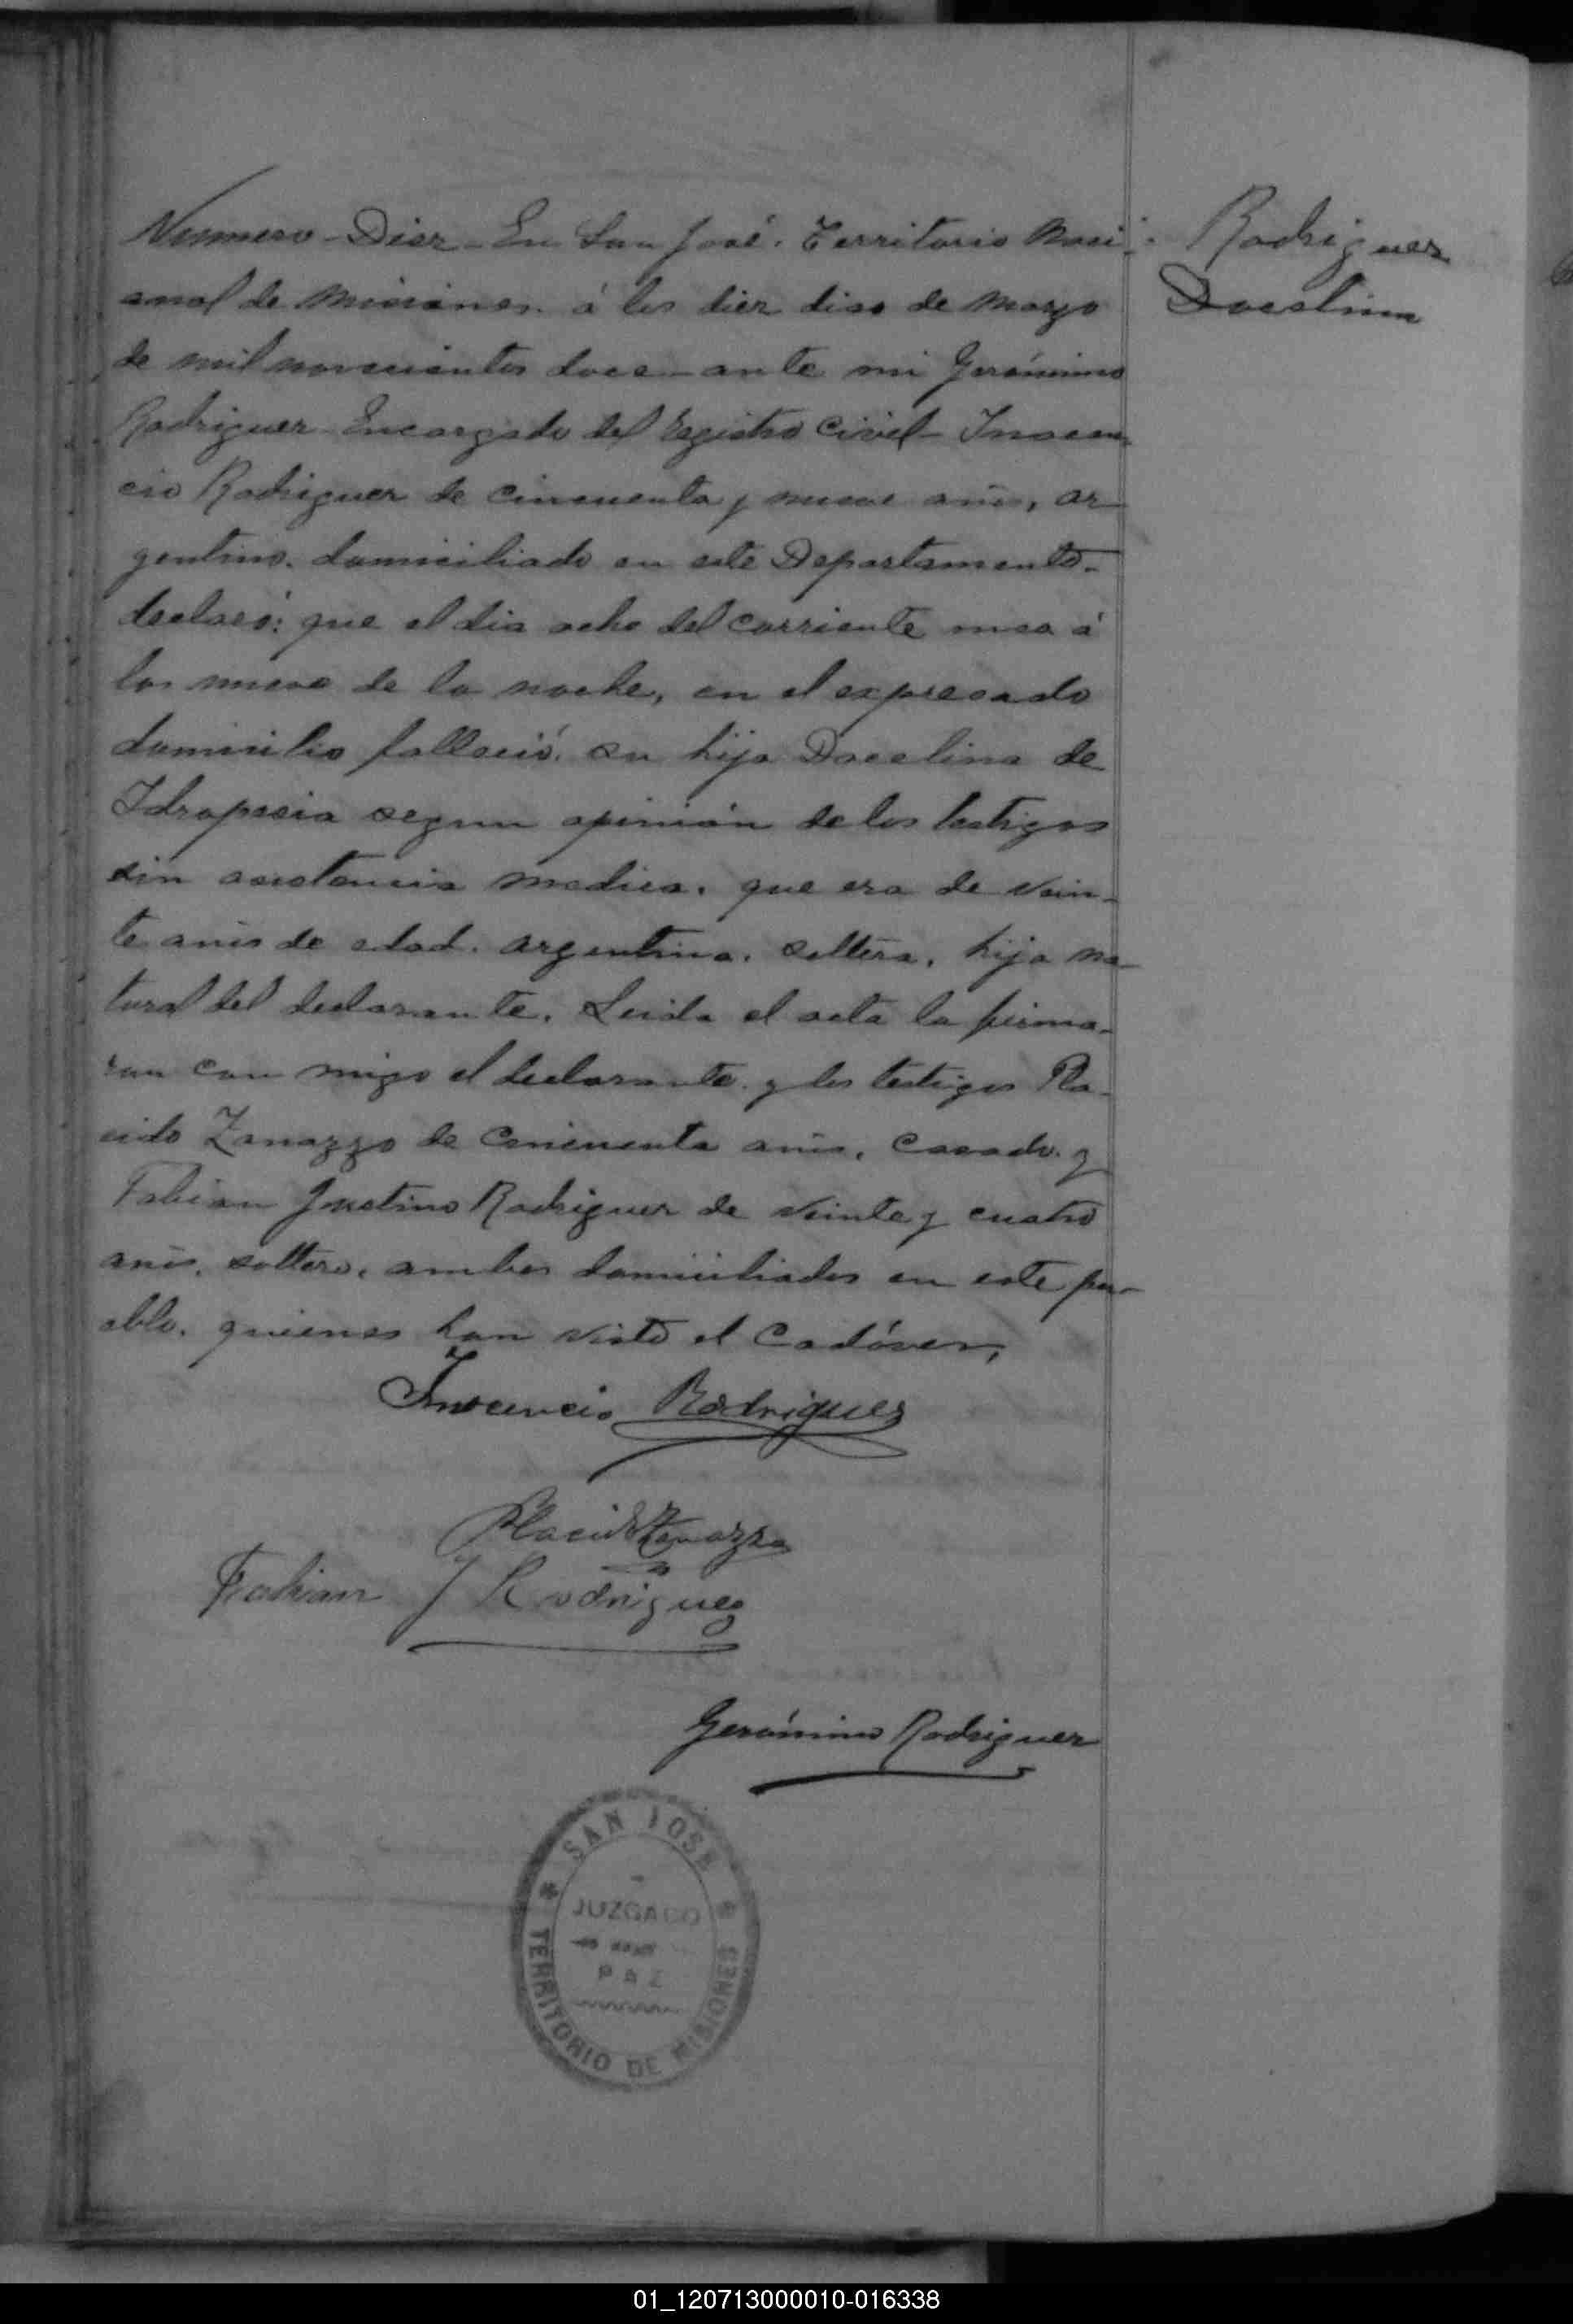 Numero - Diez - En San José. Territorio Naci-
onal de Misiones. á los diez dias de Marzo
de mil novecientos doce - ante mi Gerónimo
Rodriguez Encargado del Registro Civil - Inocen-
cio Rodriguez de cincuenta y nueve años, ar-
gentino. domiciliado en este Departamento -
declaró: que el dia ocho del corriente mes á
las nueve de la noche, en el expresado
domicilio falleció. su hija Docelina de
Idropesia segun opinión de los testigos
sin asistencia medica. que era de vein-
te años de edad. argentina. soltera. hija na-
tural del declarante. Leida el acta la firma-
ron con migo el declarante. y los testigos Pla-
cido Zanazzo de cincuenta años. casado. y
Fabian Justino Rodriguez de veinte y cuatro
años. soltero. ambos domiciliados en este pu-
eblo. quienes han visto el Cadáver,
Rodriguez
Docelina
Inocencio Rodriguez
Placido Zanazzo
Fabian J Rodriguez
Gerónimo Rodriguez
SAN JOSE
JUZGADO
PAZ
TERRITORIO DE MISIONES
01_120713000010-016338